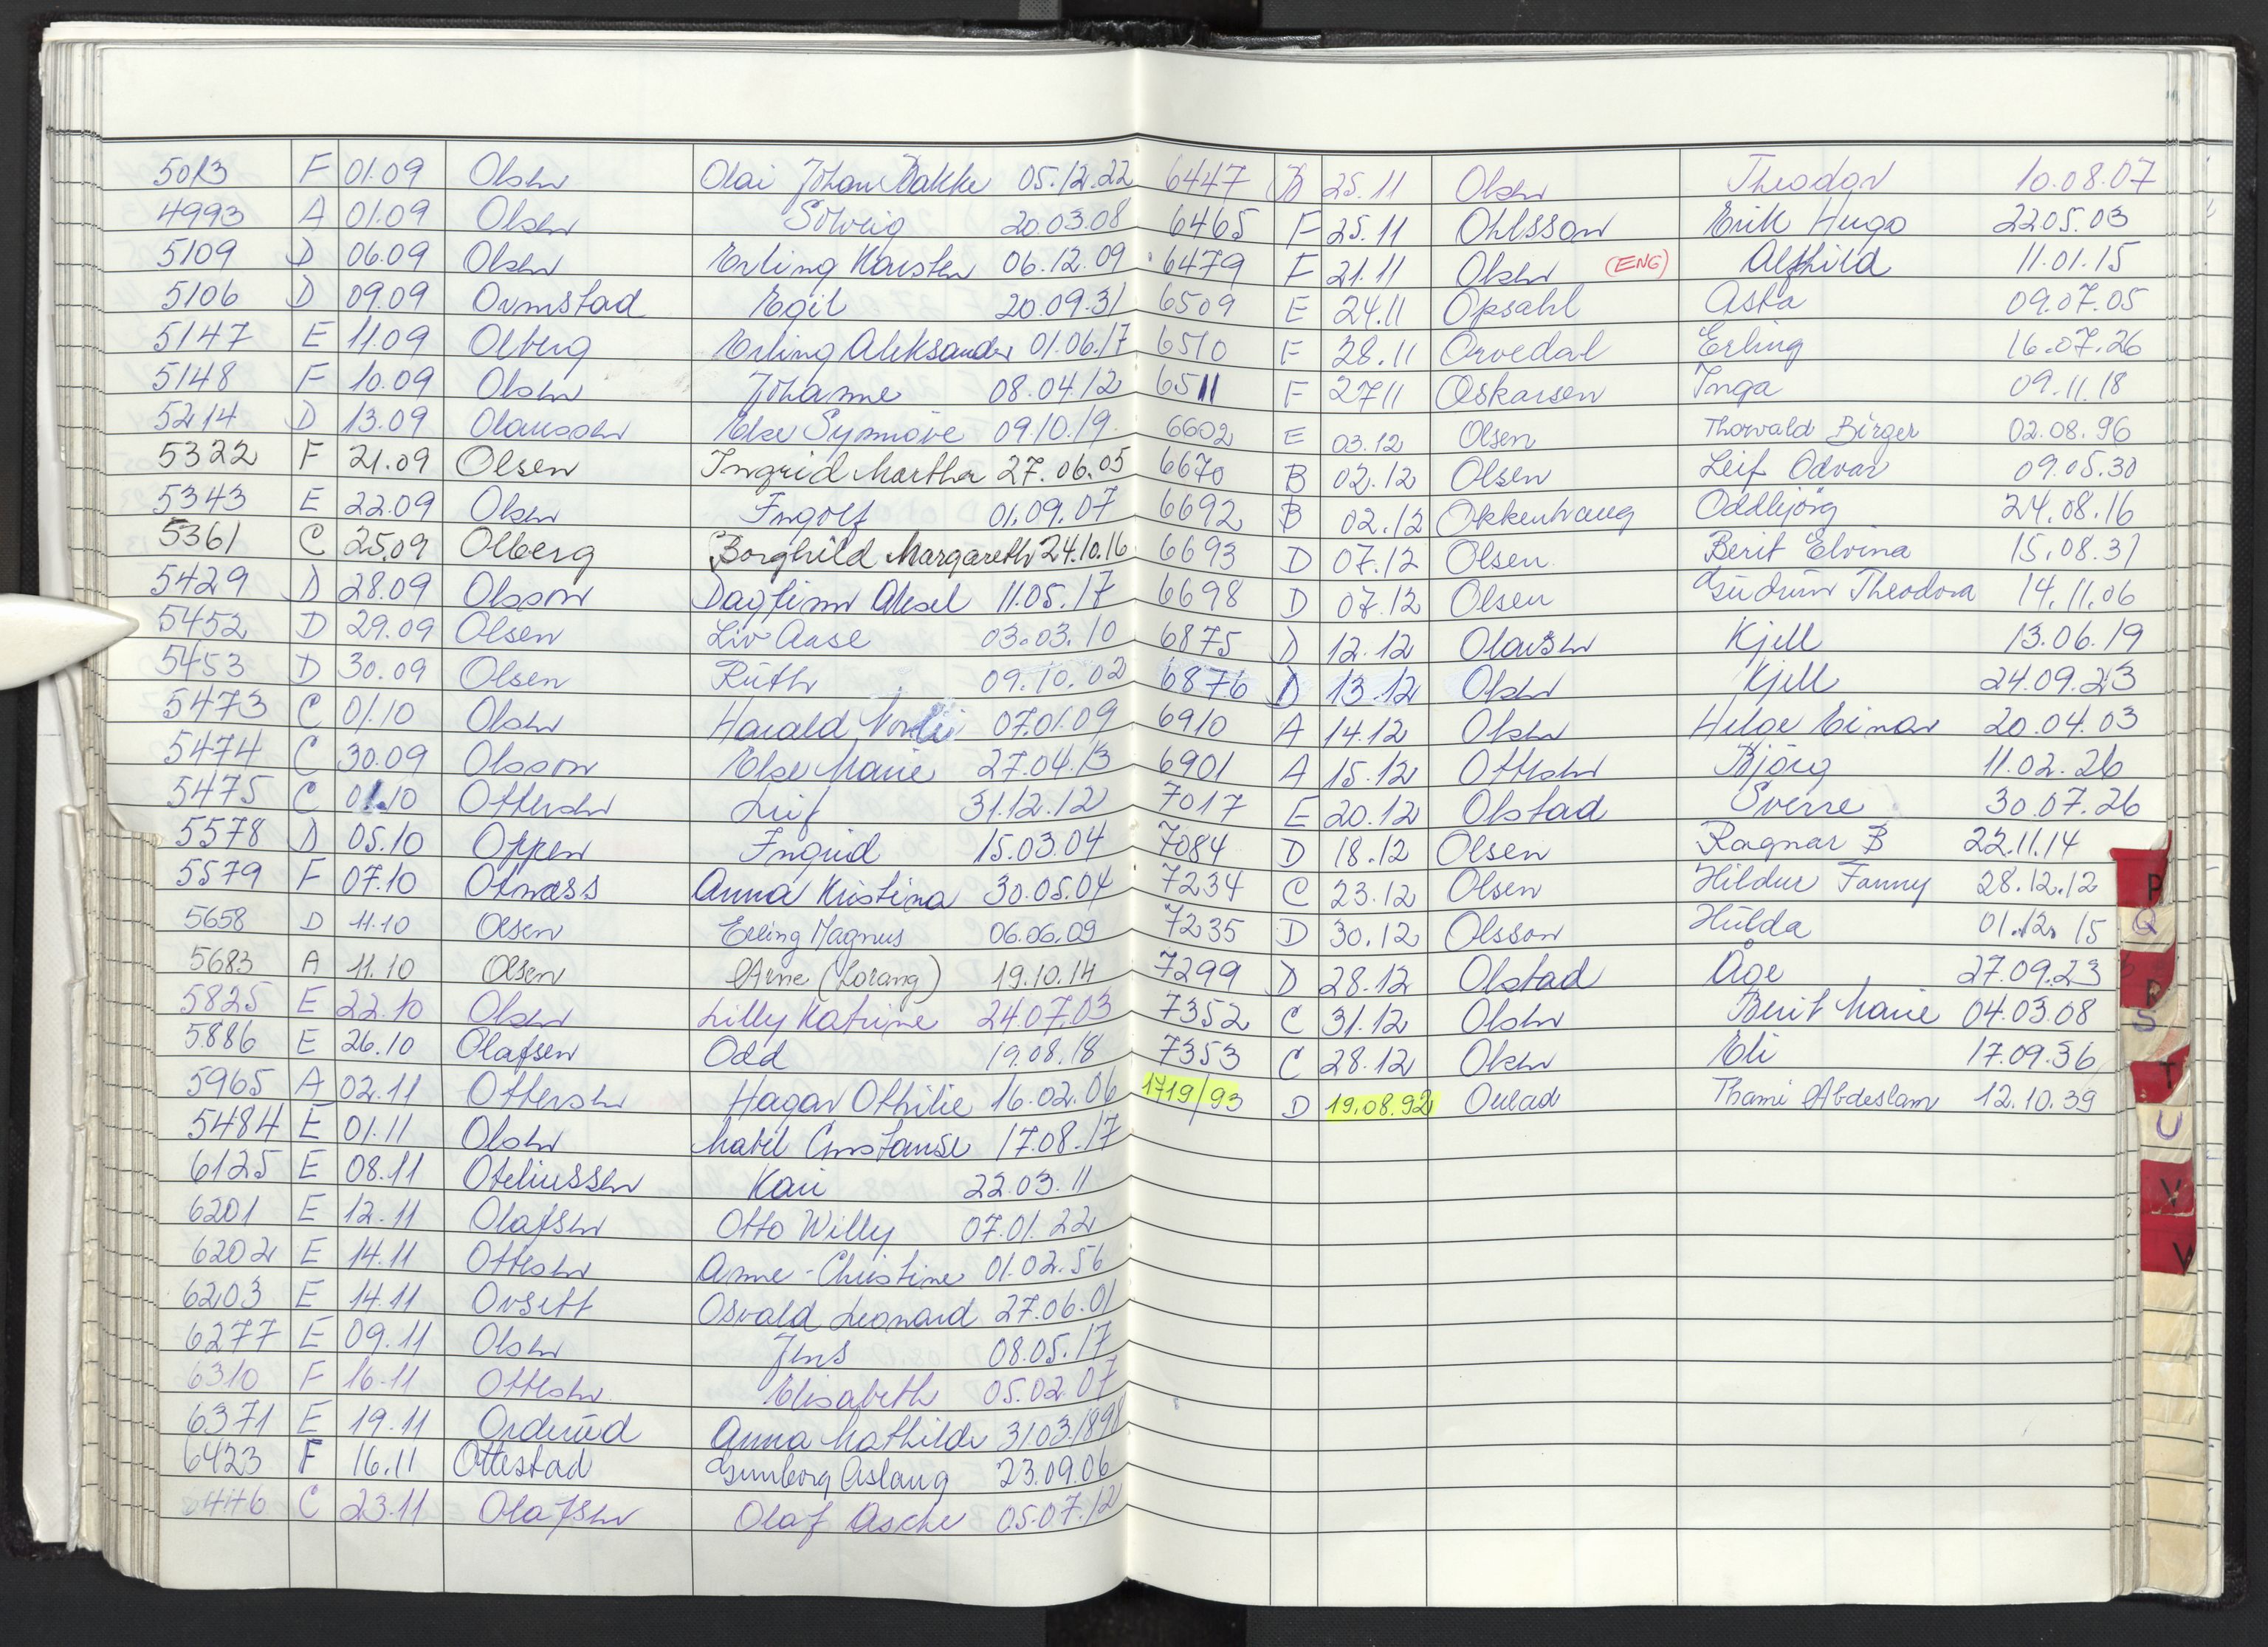 5013 F 01.09 Olsen Olai Johan Bakke 05.12.22
4993 A 01.09 Olsen Solveig 20.03.08
5109 D 06.09 Olsen Erling Karsten 06.12.09
5106 D 09.09 Ormstad Egil 20.09.31
5147 E 11.09 Olberg Erling Aleksander 01.06.17
5148 F 10.09 Olsen Johanne 08.04.12
5214 D 13.09 Olaussen Else Synnöve 09.10.19
5322 F 21.09 Olsen Ingrid Martha 27.06.05
5343 E 22.09 Olsen Ingolf 01.09.07
5361 C 25.09 Olberg Borghild Margareth 24.10.16
5429 D 28.09 Olsson Dagfinn Aksel 11.05.17
5452 D 29.09 Olsen Liv Aase 03.03.10
5453 D 30.09 Olsen Ruth 09.10.02
5473 C 01.10 Olsen Harald 07.01.09
5474 C 30.09 Olsson Else Marie 27.04.13
5475 C 01.10 Ottersen Leif 31.12.12
5578 D 05.10 Oppen Ingrid 15.03.04
5579 F 07.10 Otnæss Anna Kristina 30.05.04
5658 D 11.10 Olsen Erling Magnus 06.06.09
5683 A 11.10 Olsen Arne (Lorang) 19.10.14
5825 E 22.10 Olsen Lilly Katrine 24.07.03
5886 E 26.10 Olafsen Odd 19.08.18
5965 A 02.11 Ottersen Hagar Othilie 16.02.06
5484 E 01.11 Olsen Mabel Constanse 17.08.17
6125 E 08.11 Oteliussen Kari 22.03.11
6201 E 12.11 Olafsen Otto Willy 07.01.22
6202 E 14.11 Ottesen Anne-Christine 01.02.56
6203 E 14.11 Orsett Osvald Leonard 27.06.01
6277 E 09.11 Olsen Jens 08.05.17
6310 F 16.11 Ottesen Elisabeth 05.02.07
6371 E 19.11 Orderud Anna Mathilde 31.03.1898
6423 F 16.11 Ottestad Gunborg Aslaug 23.09.06
6446 C 23.11 Olafsen Olaf Asche 05.07.12
6447 B 25.11 Olsen Theodor 10.08.07
6465 F 25.11 Ohlsson Erik Hugo 22.05.03
6479 F 21.11 Olsen (ENG) Alfhild 11.01.15
6509 E 24.11 Opsahl Asta 09.07.05
6510 F 28.11 Orvedal Erling 16.07.26
6511 F 27.11 Oskarsen Inga 09.11.18
6602 E 03.12 Olsen Thorvald Birger 02.08.96
6670 B 02.12 Olsen Leif Odvar 09.05.30
6692 B 02.12 Okkenhaug Oddbjörg 24.08.16
6693 D 07.12 Olsen Berit Elvina 15.08.31
6698 D 07.12 Olsen Gudrun Theodora 14.11.06
6875 D 12.12 Olausen Kjell 13.06.19
6876 D 13.12 Olsen Kjell 24.09.23
6910 A 14.12 Olsen Helge Einar 20.04.03
6901 A 15.12 Ottesen Bjørg 11.02.26
7017 E 20.12 Olstad Sverre 30.07.26
7084 D 18.12 Olsen Ragnar B 22.11.14
7234 C 23.12 Olsen Hildur Fanny 28.12.12
7235 D 30.12 Olsson Hulda 01.12.15
7299 D 28.12 Olstad Åge 27.09.23
7352 C 31.12 Olsen Berit Marie 04.03.08
7353 C 28.12 Olsen Eli 17.09.36
1719/93 D 19.08.92 Oulad Thami Abdeslam 12.10.39
P
Q
R
S
T
U
V